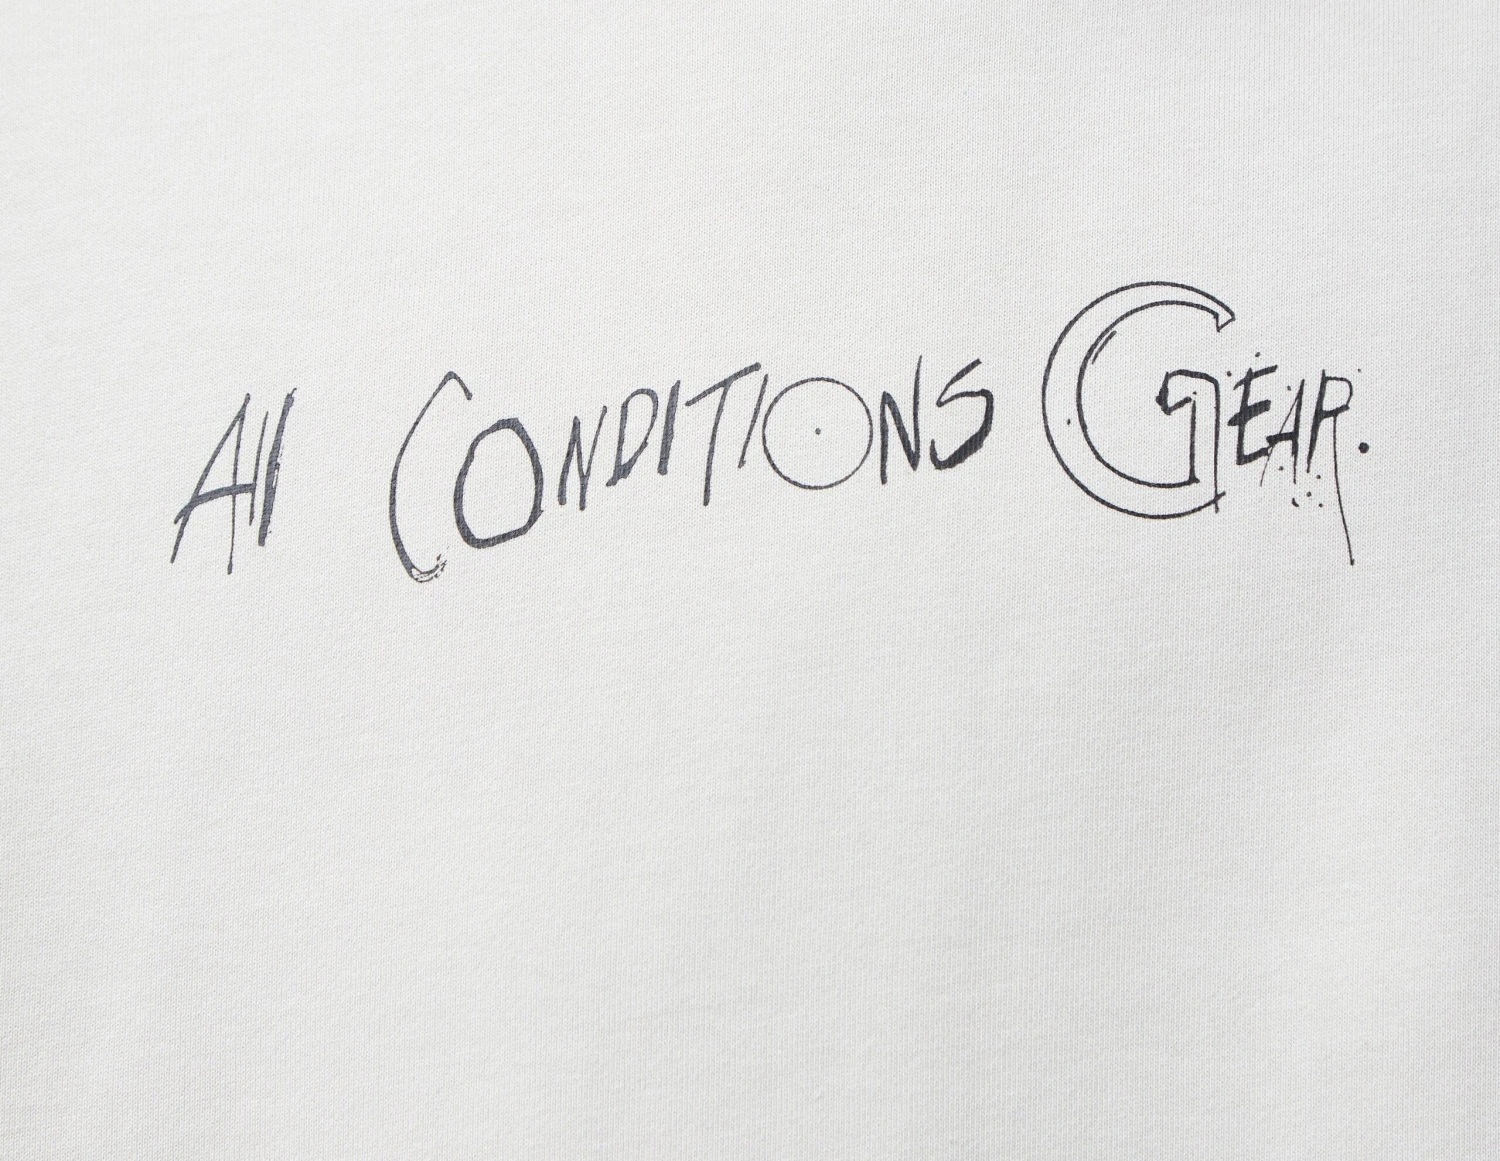 All CONDITIONS GEAR.